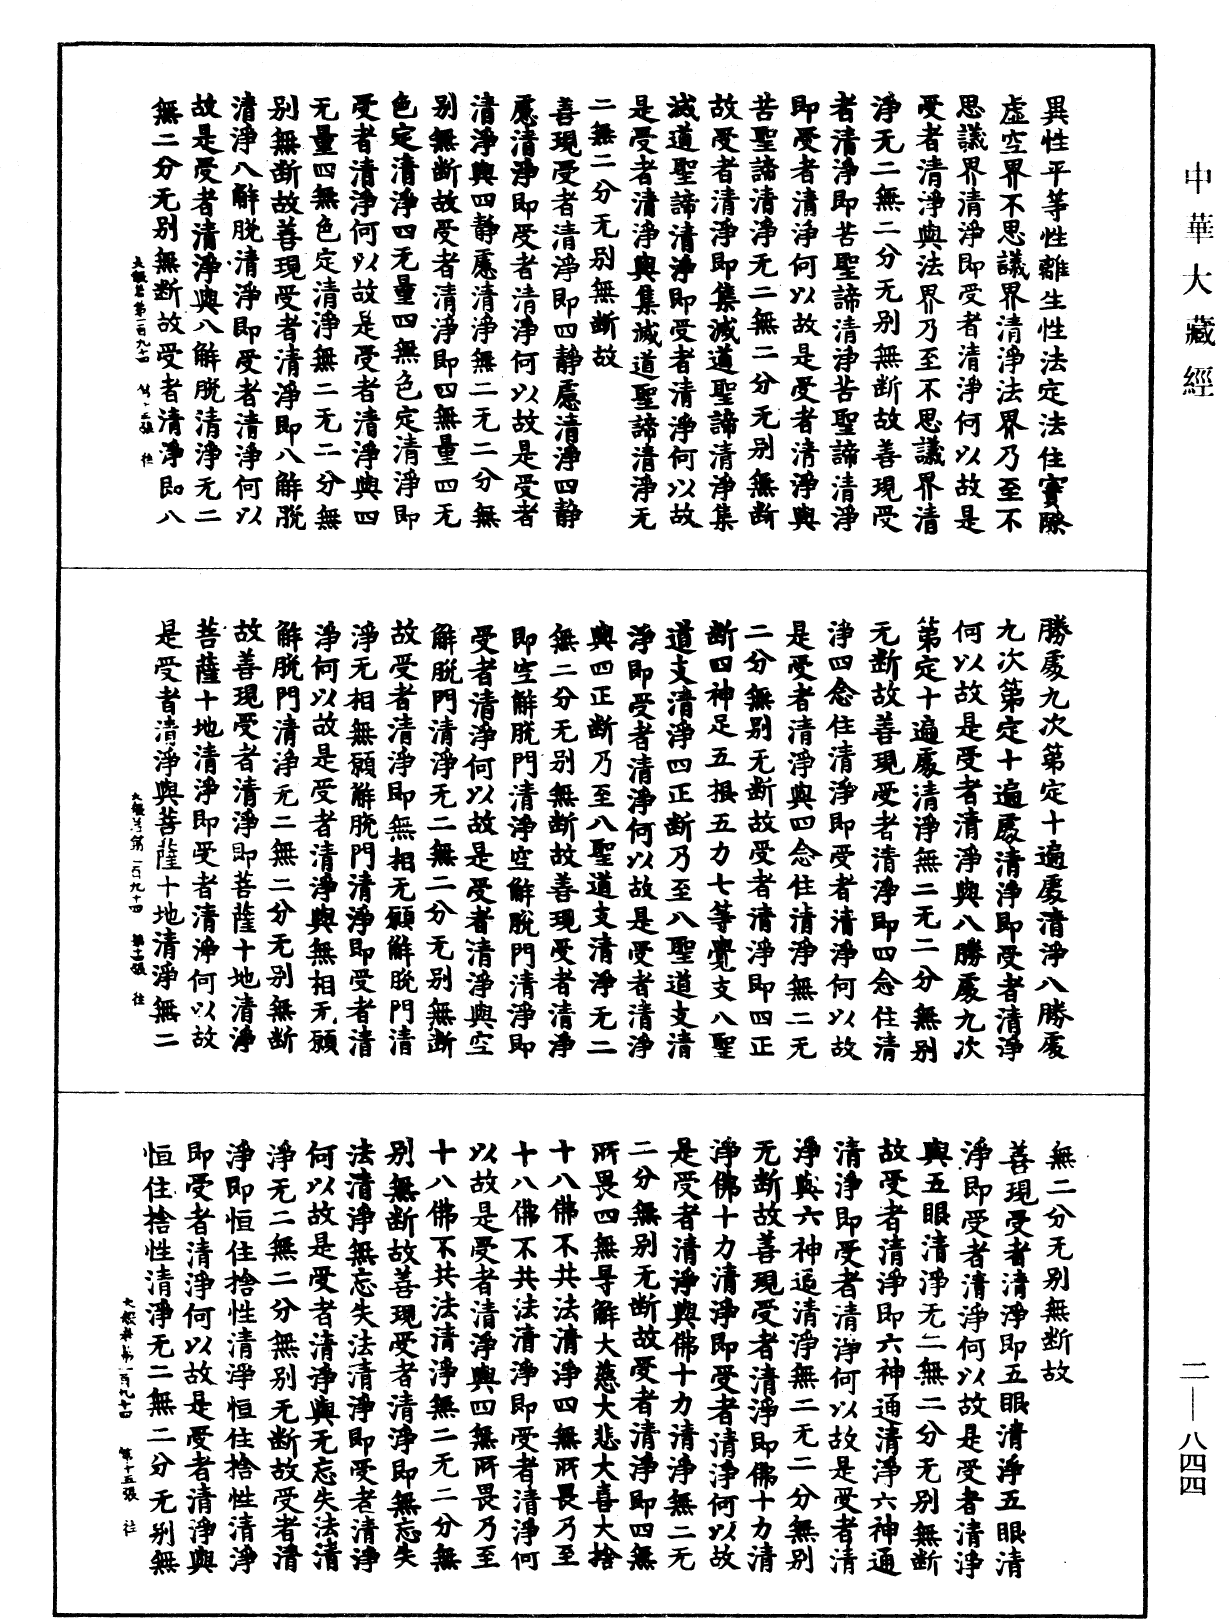 中華大藏經
異性平等性離生性法定法住實際
虛空界不思議界清淨法界乃至不
思議界清淨即受者清淨何以故是
受者清淨與法界乃至不思議界清
淨无二無二分无别無断故善現受
者清淨即苦聖諦清淨苦聖諦清淨
即受者清淨何以故是受者清淨與
苦聖諦清淨无二無二分无别無断
故受者清淨即集滅道聖諦清淨集
滅道聖諦清淨即受者清淨何以故
是受者清淨與集滅道聖諦清淨无
二無二分无别無断故
善現受者清淨即四静慮清淨四静
慮清淨即受者清淨何以故是受者
清淨與四静慮清淨無二无二分無
别無断故受者清淨即四無量四无
色定清淨四无量四無色定清淨即
受者清淨何以故是受者清淨與四
无量四無色定清淨無二无二分無
别無断故善現受者清淨即八解脱
清淨八解脱清淨即受者清淨何以
故是受者清淨與八解脱清淨无二
無二分无别無断故受者清淨即八
大般若第一百九十四 第十三張 往
勝處九次第定十遍處清淨八勝處
九次第定十遍處清淨即受者清淨
何以故是受者清淨與八勝處九次
第定十遍處清淨無二无二分無别
无断故善現受者清淨即四念住清
淨四念住清淨即受者清淨何以故
是受者清淨與四念住清淨無二无
二分無别无断故受者清淨即四正
断四神足五根五力七等覺支八聖
道支清淨四正断乃至八聖道支清
淨即受者清淨何以故是受者清淨
與四正断乃至八聖道支清淨无二
無二分无别無断故善現受者清淨
即空解脱門清淨空解脱門清淨即
受者清淨何以故是受者清淨與空
解脱門清淨无二無二分无别無断
故受者清淨即無相无願解脱門清
淨无相無願解脱門清淨即受者清
淨何以故是受者清淨與無相无願
解脱門清淨无二無二分无别無断
故善現受者清淨即菩薩十地清淨
菩薩十地清淨即受者清淨何以故
是受者清淨與菩薩十地清淨無二
大般若第一百九十四 第十四張 往
無二分无别無断故
善現受者清淨即五眼清淨五眼清
淨即受者清淨何以故是受者清淨
與五眼清淨无二無二分无别無断
故受者清淨即六神通清淨六神通
清淨即受者清淨何以故是受者清
淨與六神通清淨無二无二分無别
无断故善現受者清淨即佛十力清
淨佛十力清淨即受者清淨何以故
是受者清淨與佛十力清淨無二无
二分無别无断故受者清淨即四無
所畏四無导解大慈大悲大喜大捨
十八佛不共法清淨四無所畏乃至
十八佛不共法清淨即受者清淨何
以故是受者清淨與四無所畏乃至
十八佛不共法清淨無二无二分無
别無断故善現受者清淨即無忘失
法清淨無忘失法清淨即受者清淨
何以故是受者清淨與无忘失法清
淨无二無二分無别无断故受者清
淨即恒住捨性清淨恒住捨性清淨
即受者清淨何以故是受者清淨與
恒住捨性清淨无二無二分无别無
大般若第一百九十四 第十五張 往
二—八四四